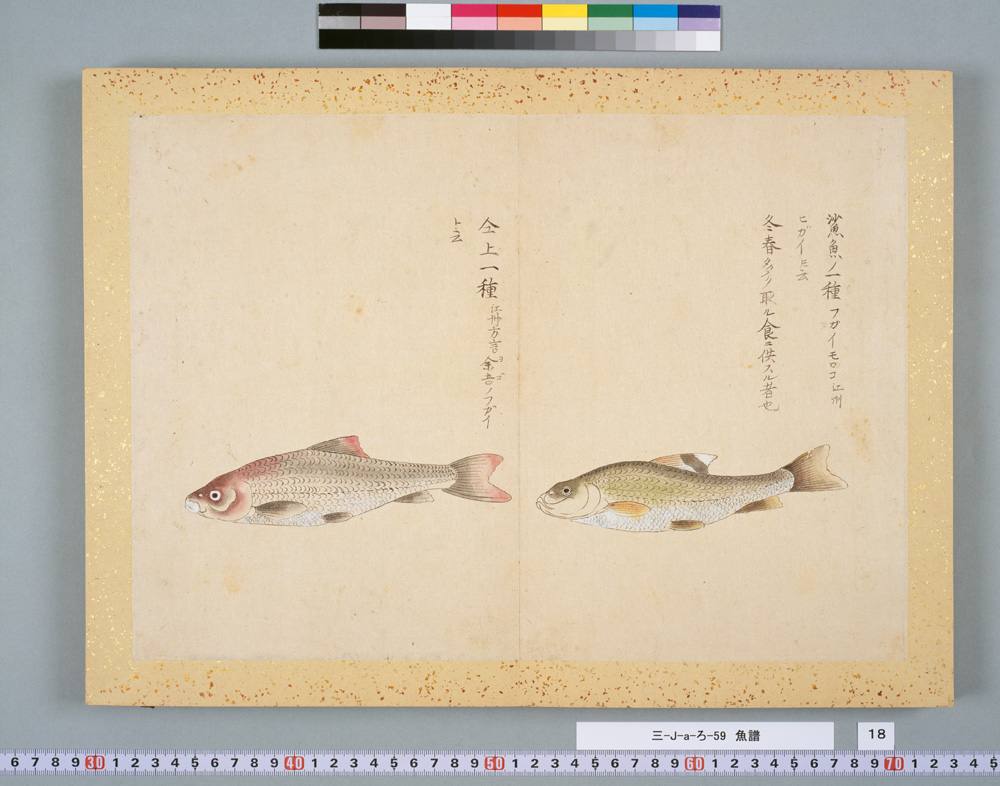 鯊魚ノ一種 フガイモロコ 江州
ヒガイ圧云
冬春多ク取ル食ニ供スル者也
仝上一種 江州方言余吾ノフガイ
ヨゴ
ト云
三-J-a-ろ-59 魚譜
18
6 7 8 9 30 1 2 3 4 5 6 7 8 9 40 1 2 3 4 5 6 7 8 9 50 1 2 3 4 5 6 7 8 9 60 1 2 3 4 5 6 7 8 9 70 1 2 3 4 5